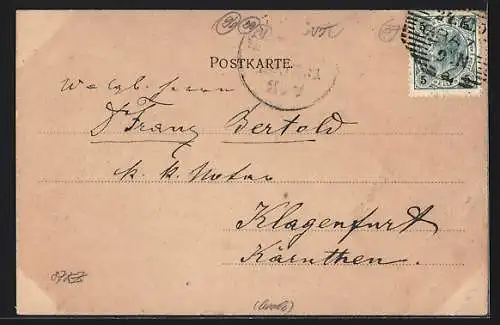 POSTKARTE.
Wolgb. Herrn
Dr Franz Bertold
k. k. Notar
Klagenfurt
Kärnthen.